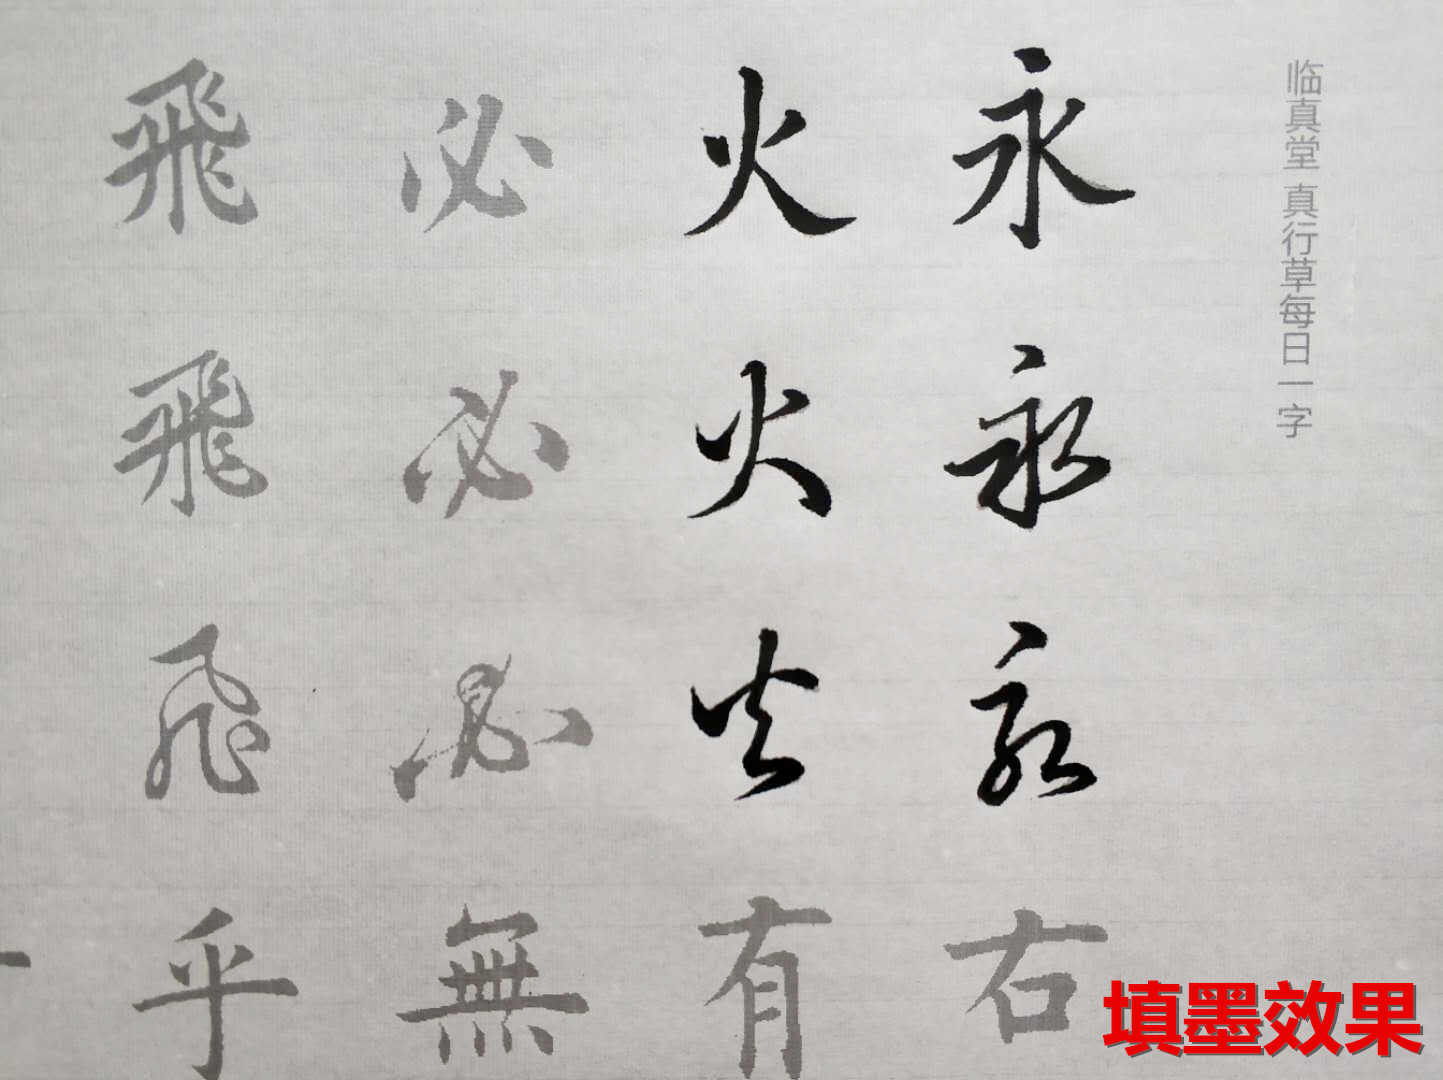 临真堂 真行草每日一字
永永永右
火火火有
必必必無
飛飛飛乎
填墨效果